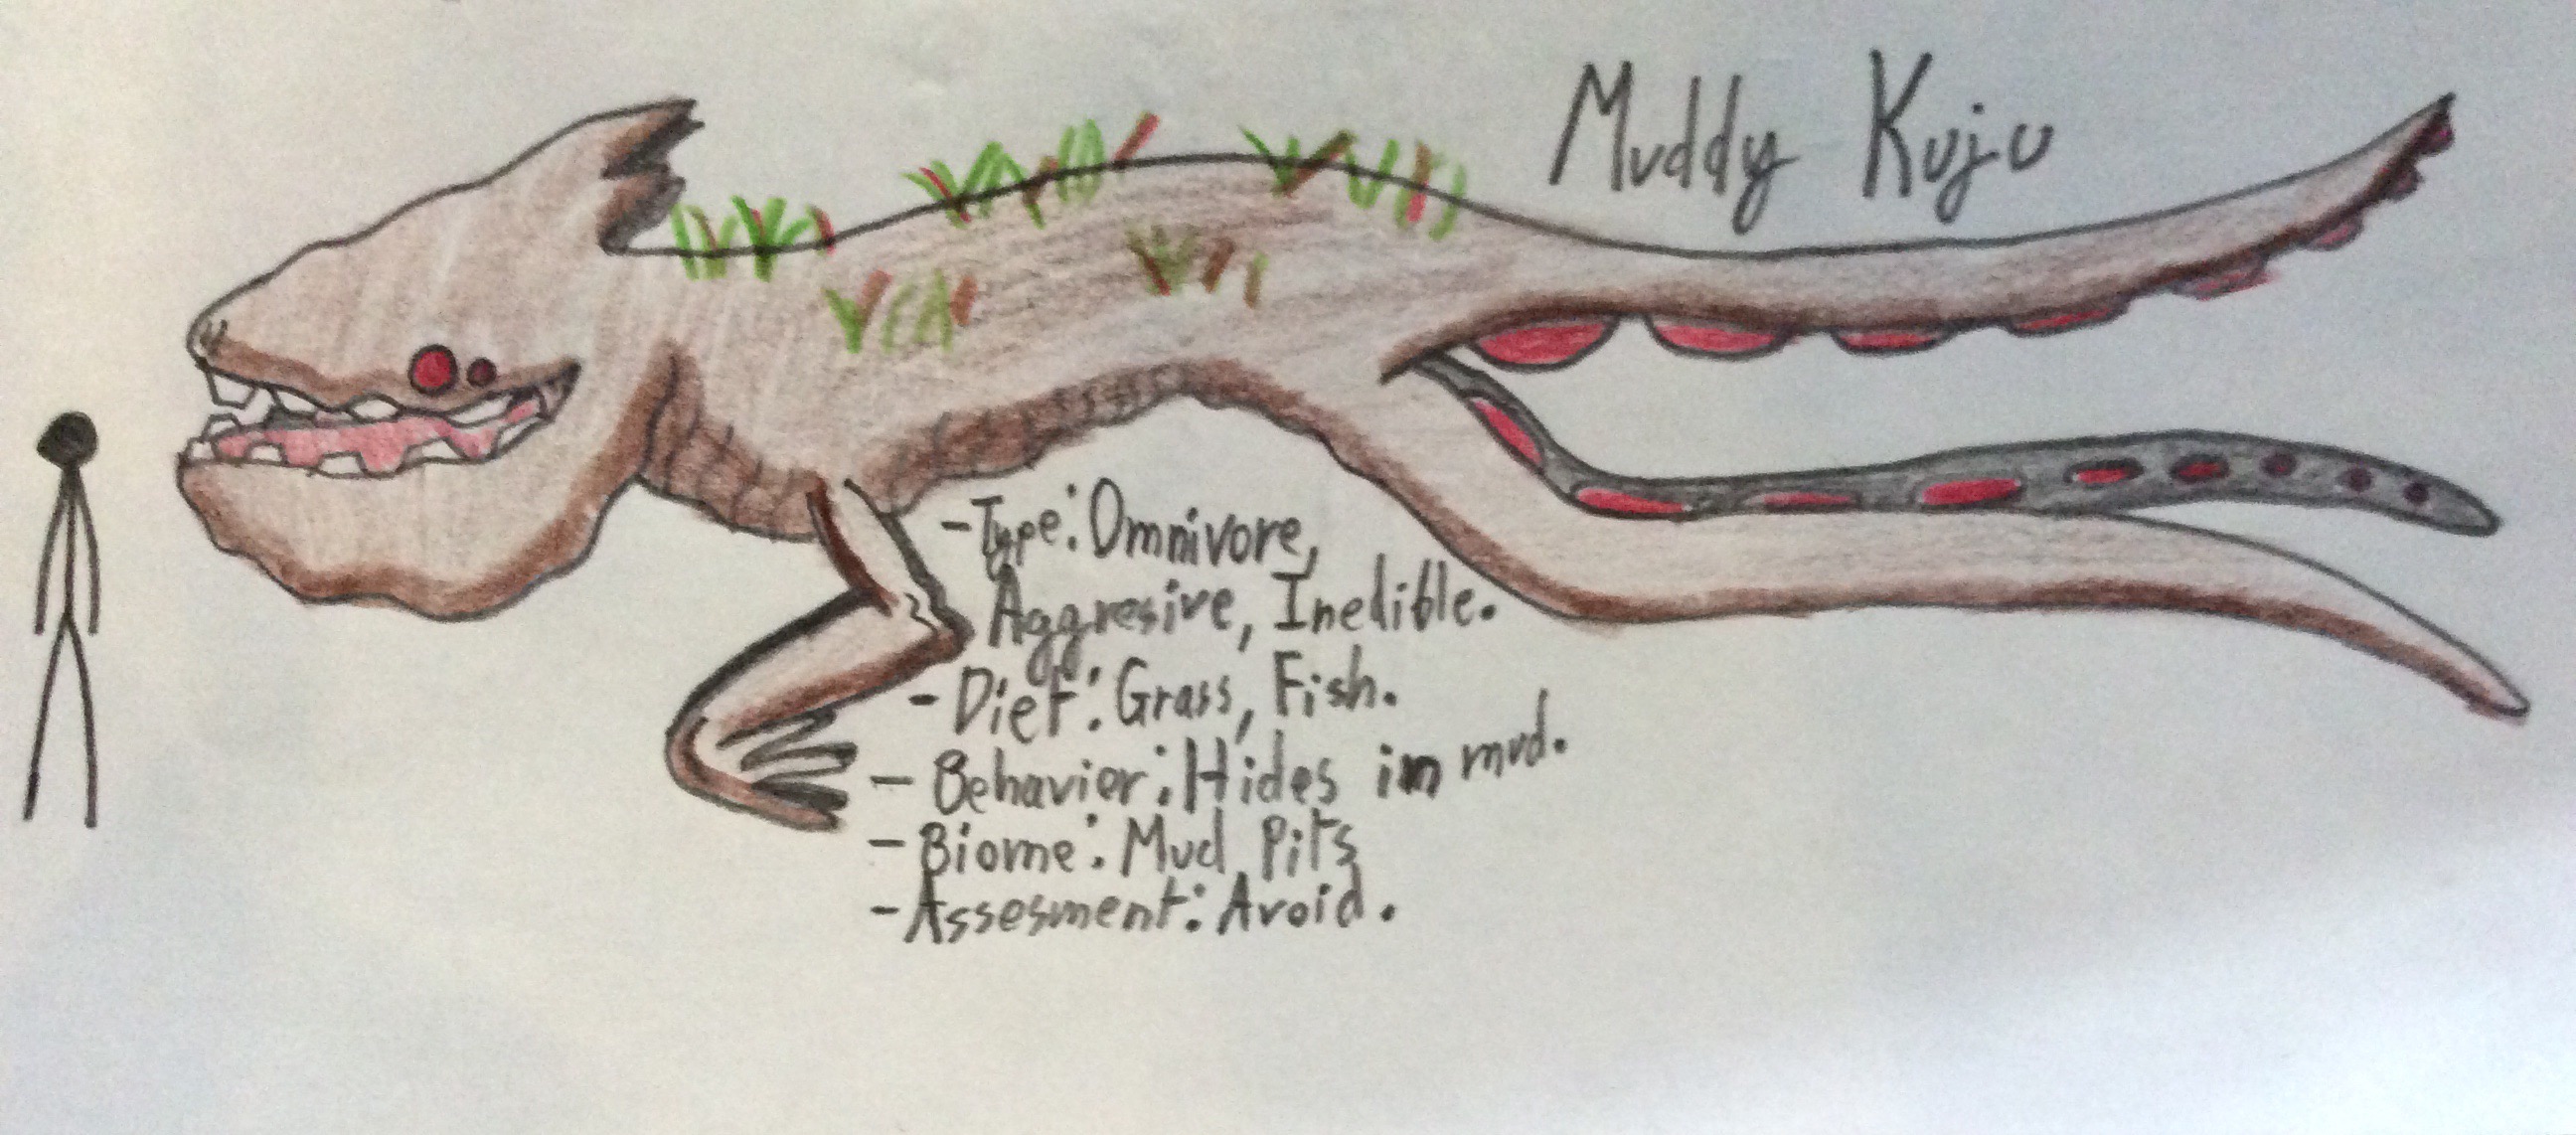 Muddy Kuju
-Type: Omnivore,
Aggresive, Inedible.
- Diet: Grass, Fish.
- Behavior: Hides in mud.
- Biome: Mud Pits
-Assesment: Avoid.